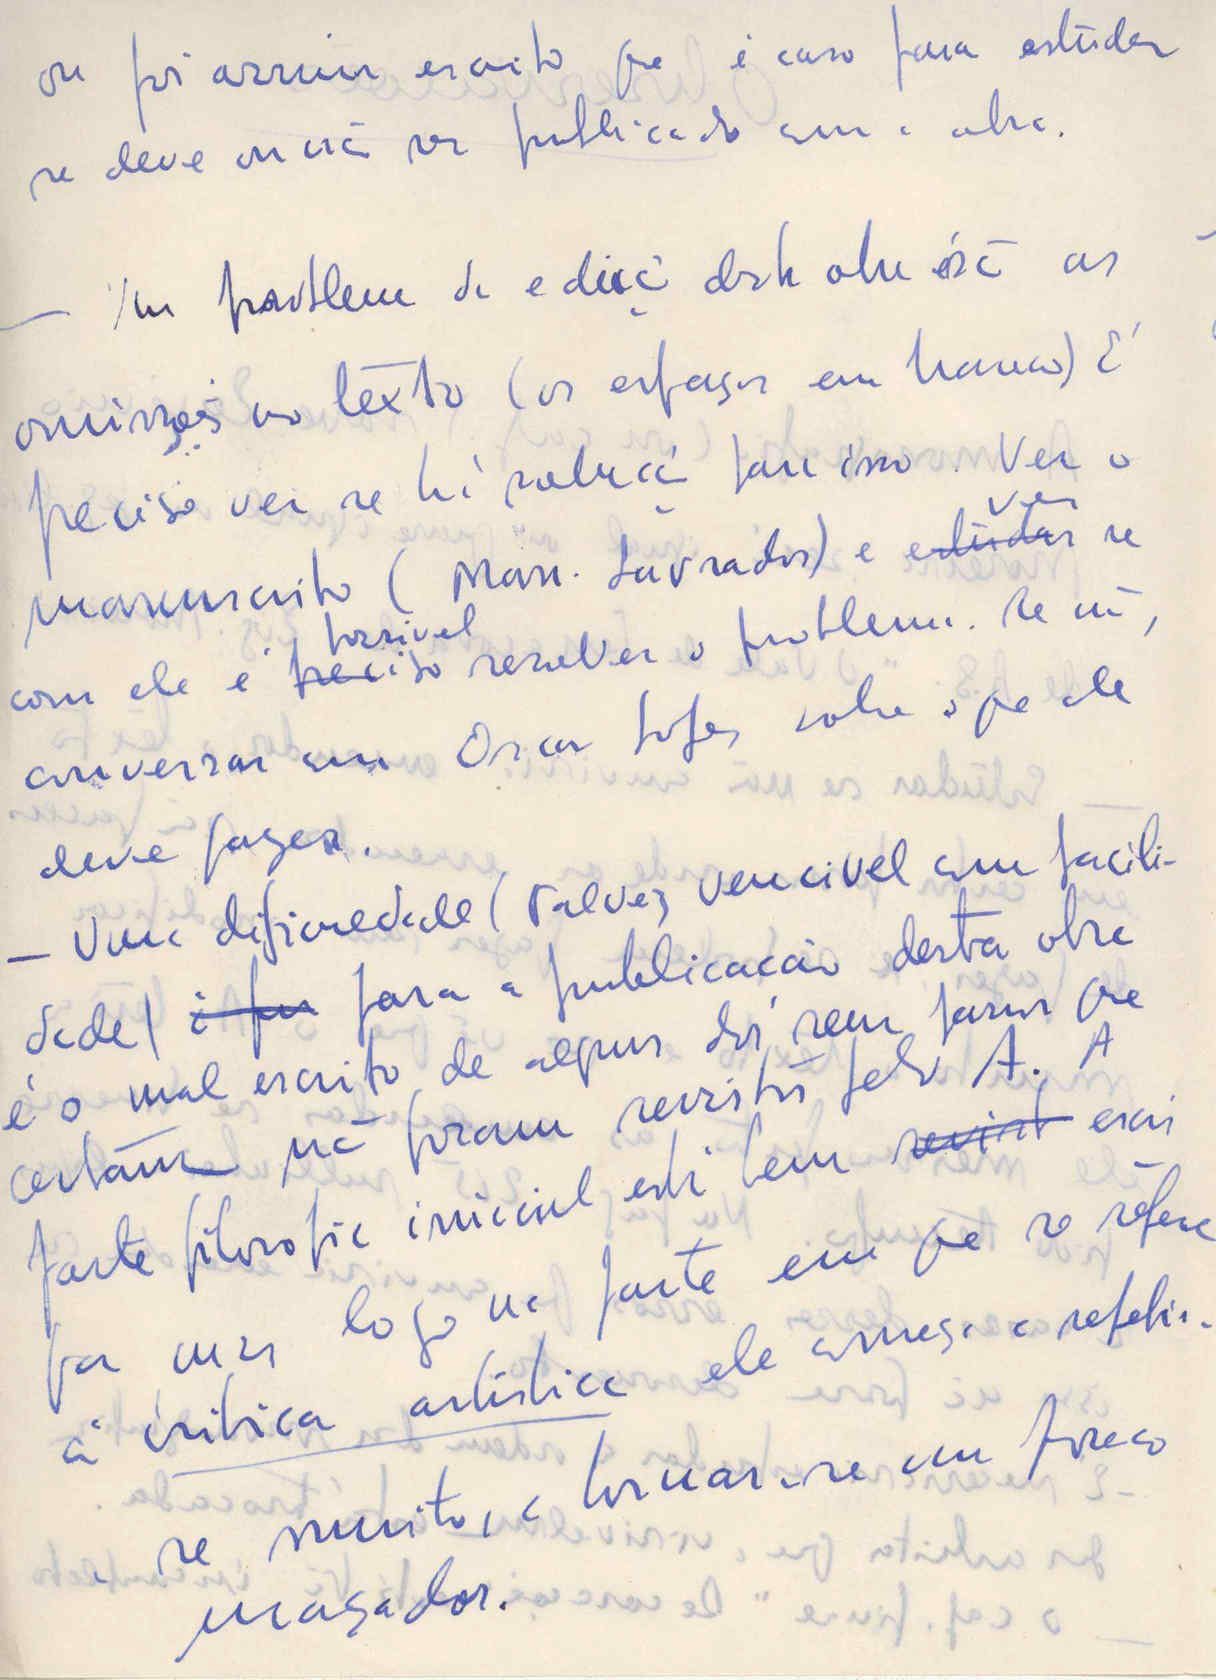 ou foi assim escrito que é caso para estudar
se deve ou não ser publicado com a obra.
— Um problema da edição desta obra são as
omissões no texto (os espaços em branco) É
preciso ver se há solução para isso. Ver o
manuscrito (Man. Lavrados) e estudar ver se
com ele é preciso possivel resolver o problema. Se não,
conversar com Oscar Lopes sobre o que ele
deve fazer.
— Uma dificuldade (talvez vencivel com facili-
dade) é para a publicação desta obra
é o mal escrito de alguns dos seus passos que
certam não foram revistos pelo A. A
parte filosofica inicial está bem escri
por mas logo na parte em que se refere
à critica artistica ele começa a repetir-
se muito, e a tornar-se um pouco
maçador.